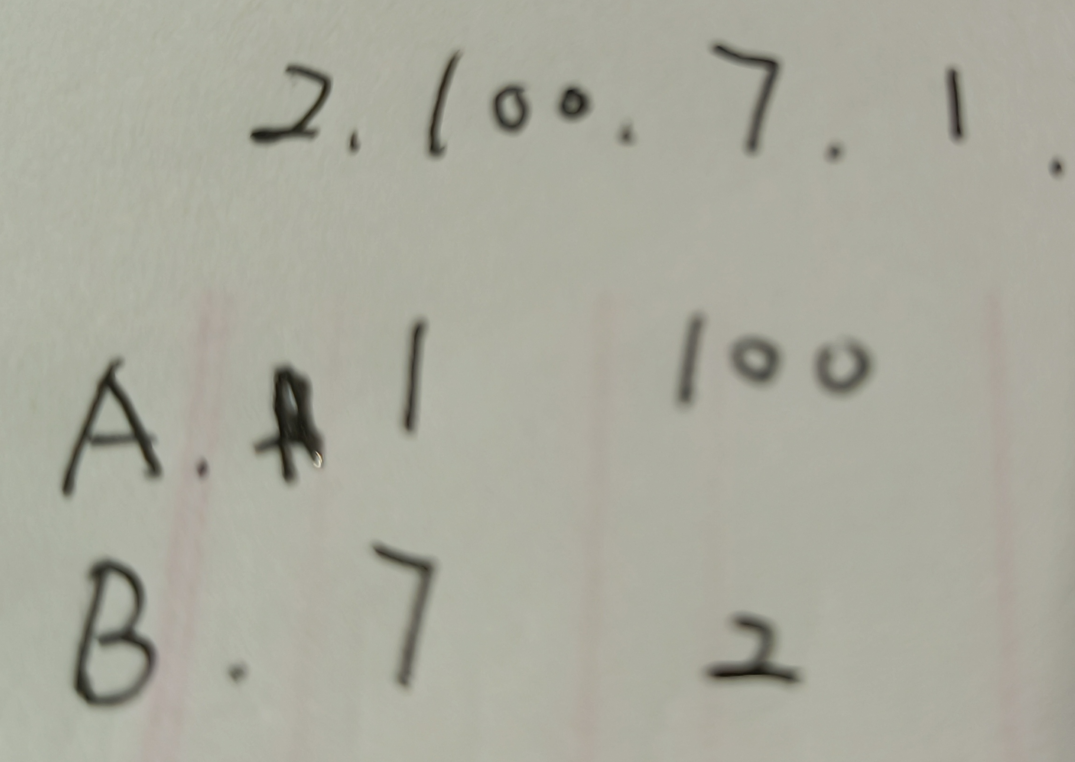 2. 100. 7. 1.
A. 1 100
B. 7 2